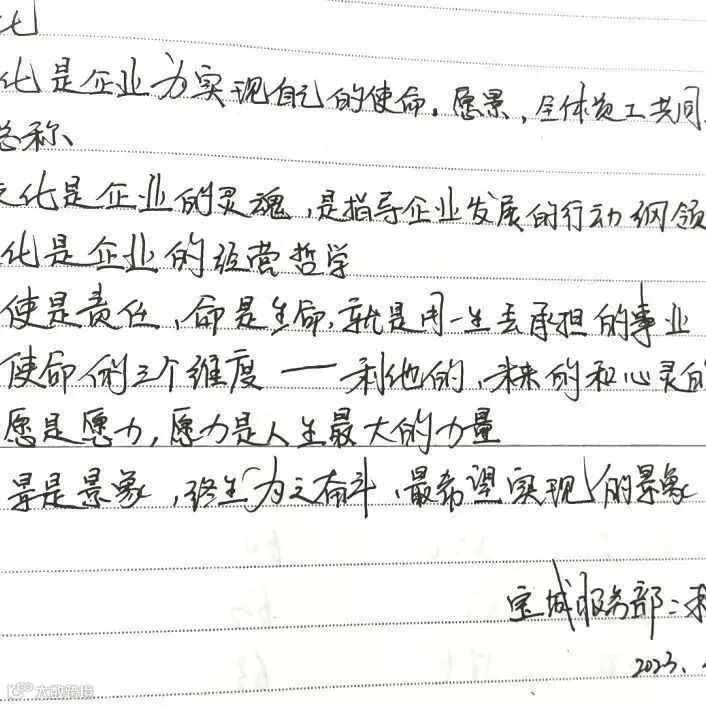 化
化是企业为实现自己的使命，愿景，全体员工共同
总称、
文化是企业的灵魂，是指导企业发展的行动纲领
化是企业的经营哲学
使是责任，命是生命，就是用一生去承担的事业
使命的三个维度——利他的、未来的和心灵的
愿是愿力，愿力是人生最大的力量
景是景象，终生为之奋斗，最希望实现的景象
宝城服务部：
2023、
大数跨境